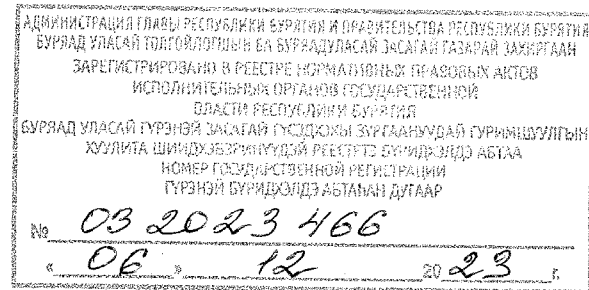 АДМИНИСТРАЦИЯ ГЛАВЫ РЕСПУБЛИКИ БУРЯТИЯ И ПРАВИТЕЛЬСТВА РЕСПУБЛИКИ БУРЯТИЯ
БУРЯАД УЛАСАЙ ТОЛГОЙЛОГШЫН БА БУРЯАДУЛАСАЙ ЗАСАГАЙ ГАЗАРАЙ ЗАХИРГААН
ЗАРЕГИСТРИРОВАНО В РЕЕСТРЕ НОРМАТИВНЫХ ПРАВОВЫХ АКТОВ
ИСПОЛНИТЕЛЬНЫХ ОРГАНОВ ГОСУДАРСТВЕННОЙ
ВЛАСТИ РЕСПУБЛИКИ БУРЯТИЯ
БУРЯАД УЛАСАЙ ГҮРЭНЭЙ ЗАСАГАЙ ГҮЙСЭДХЭХЫ ЗУРГААНУУДАЙ ГУРИМШУУЛГЫН
ХУУЛИТА ШИИДХЭБЭРИНҮҮДЭЙ РЕЕСТРТЭ БҮРИДХЭЛДЭ АБТАА
НОМЕР ГОСУДАРСТВЕННОЙ РЕГИСТРАЦИИ
ГҮРЭНЭЙ БҮРИДХЭЛДЭ АБТАҺАН ДУГААР
№ 03 2023 466
« 06 » 12 20 23 г.